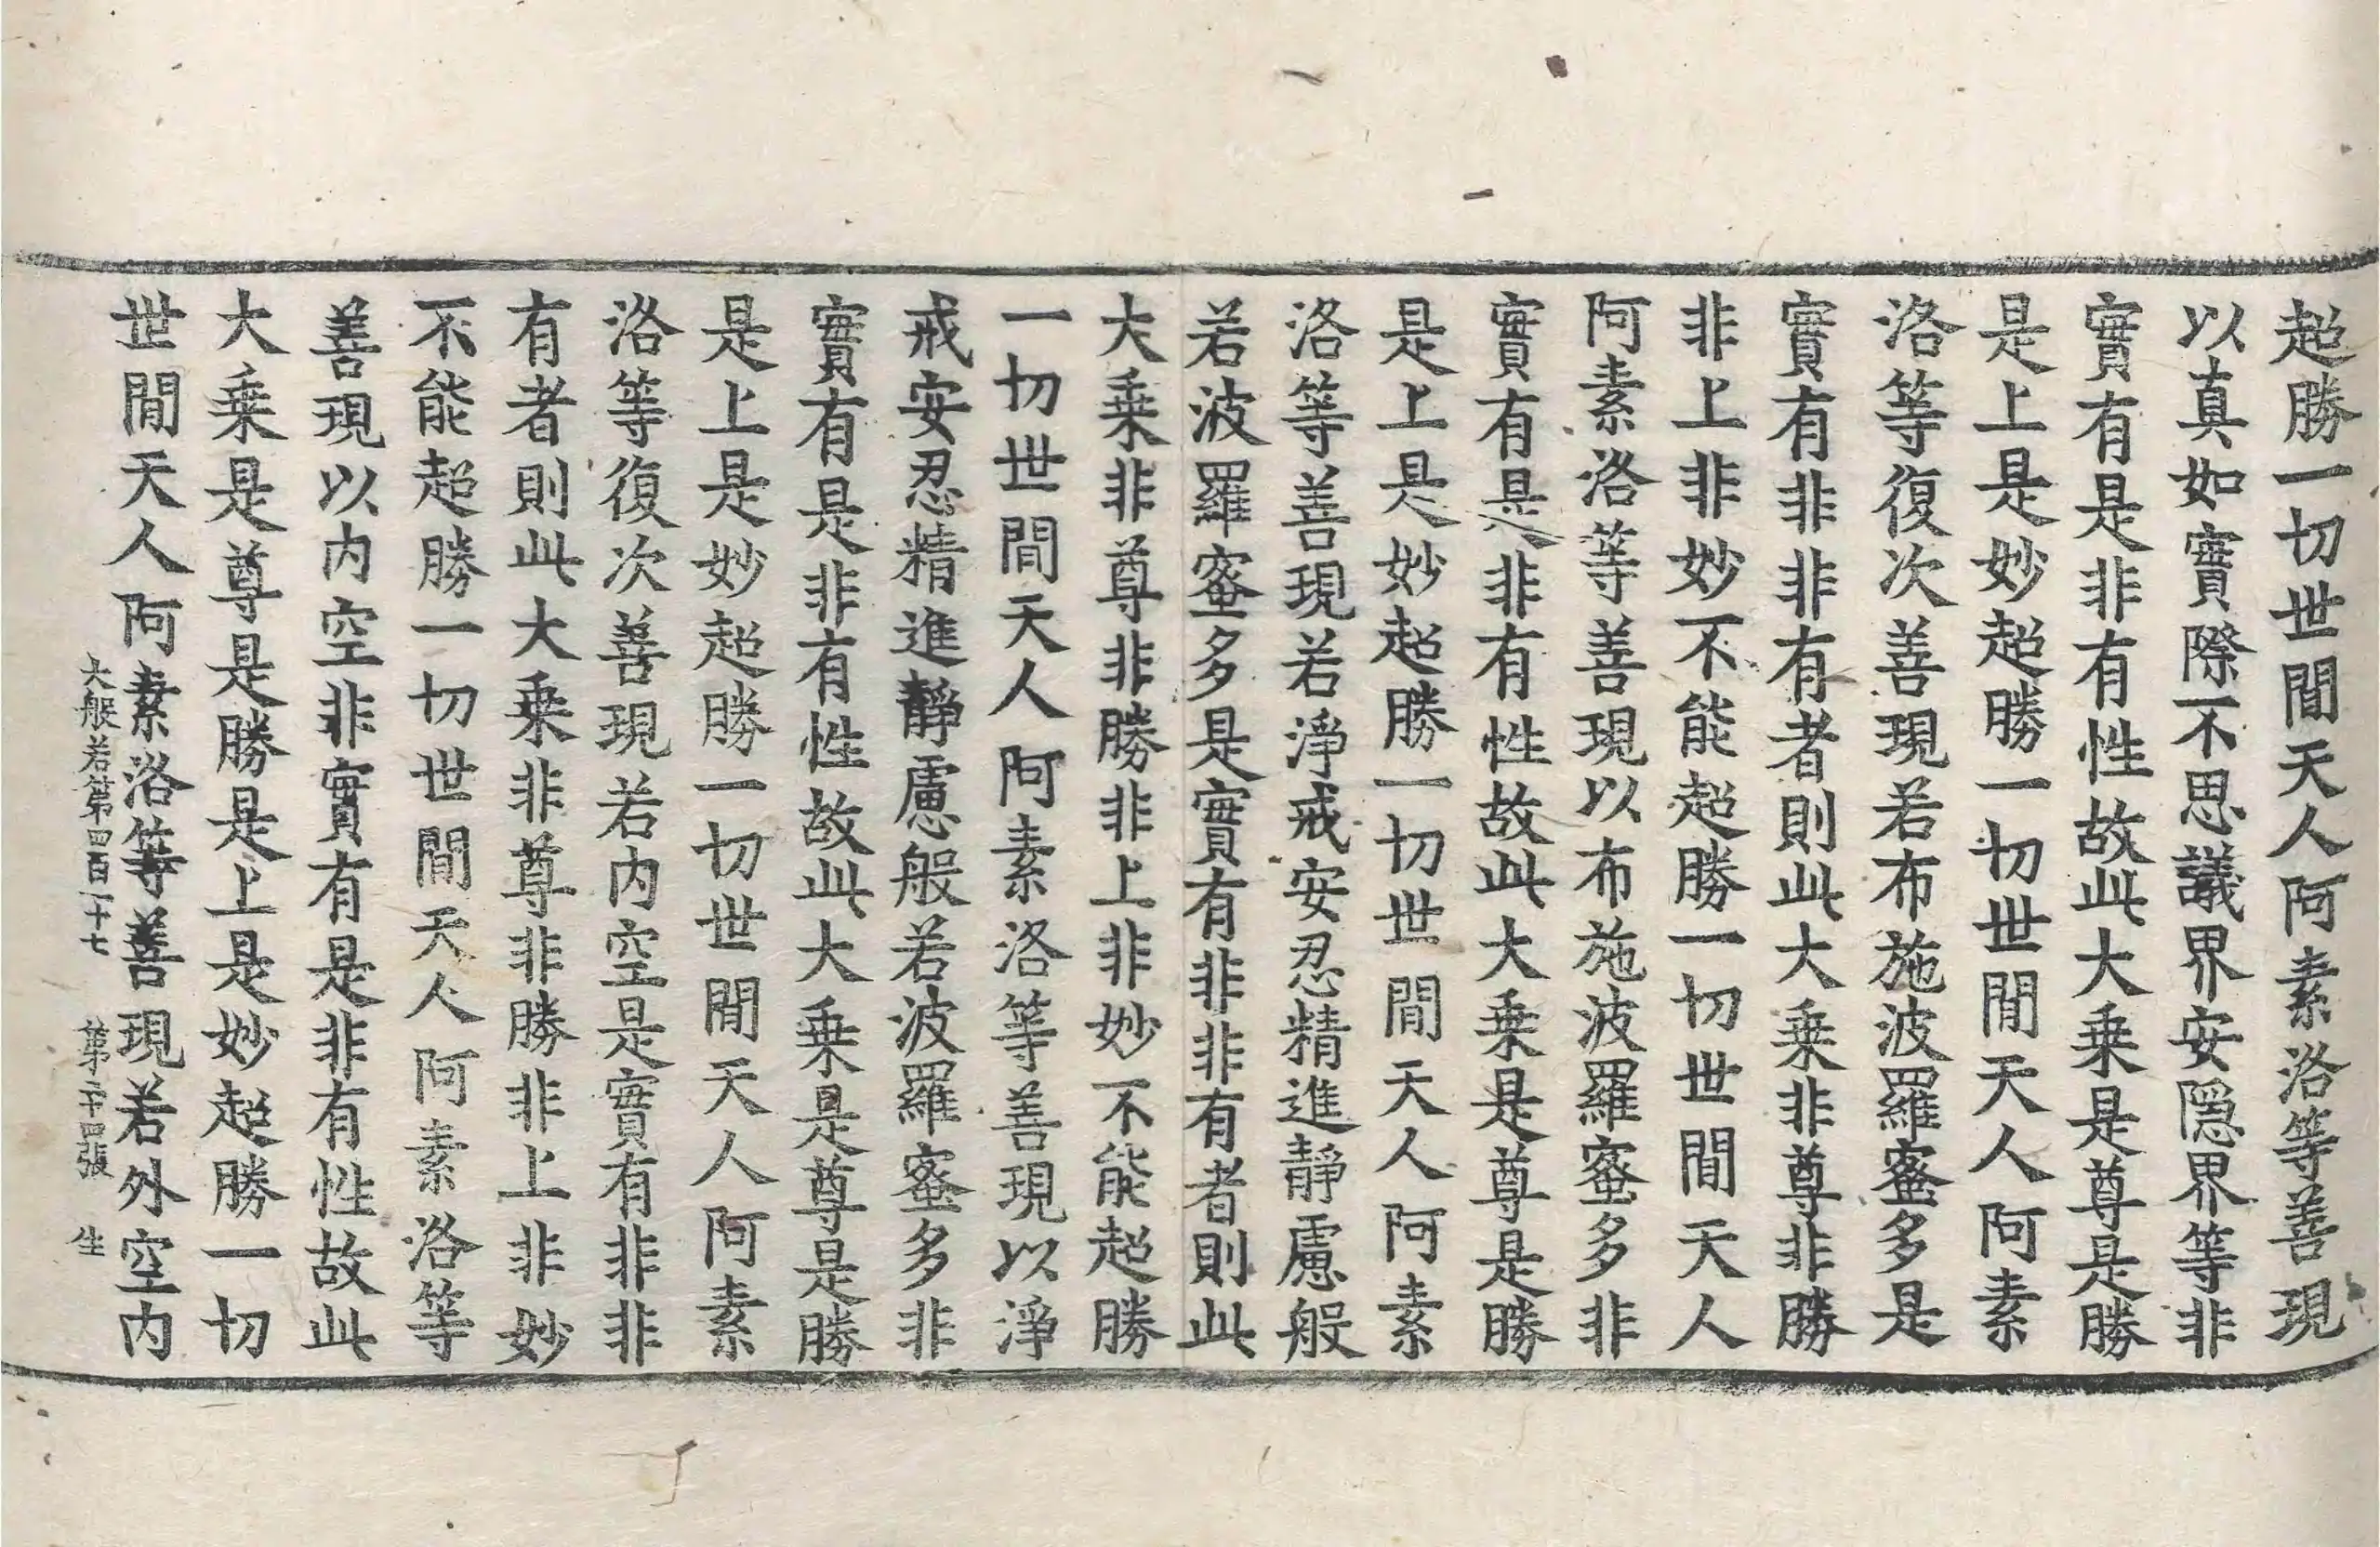 超勝一切世間天人阿素洛等善現
以真如實際不思議界安隱界等非
實有是非有性故此大乗是尊是勝
是上是妙超勝一切世間天人阿素
洛等復次善現若布施波羅蜜多是
實有非非有者則此大乗非尊非勝
非上非妙不能超勝一切世間天人
阿素洛等善現以布施波羅蜜多非
實有是非有性故此大乗是尊是勝
是上是妙超勝一切世間天人阿素
洛等善現若淨戒安忍精進靜慮般
若波羅蜜多是實有非非有者則此
大乗非尊非勝非上非妙不能超勝
一切世間天人阿素洛等善現以淨
戒安忍精進靜慮般若波羅蜜多非
實有是非有性故此大乗是尊是勝
是上是妙超勝一切世間天人阿素
洛等復次善現若内空是實有非非
有者則此大乗非尊非勝非上非妙
不能超勝一切世間天人阿素洛等
善現以内空非實有是非有性故此
大乗是尊是勝是上是妙超勝一切
世間天人阿素洛等善現若外空内
大般若第四百一十七 第二十四張 生